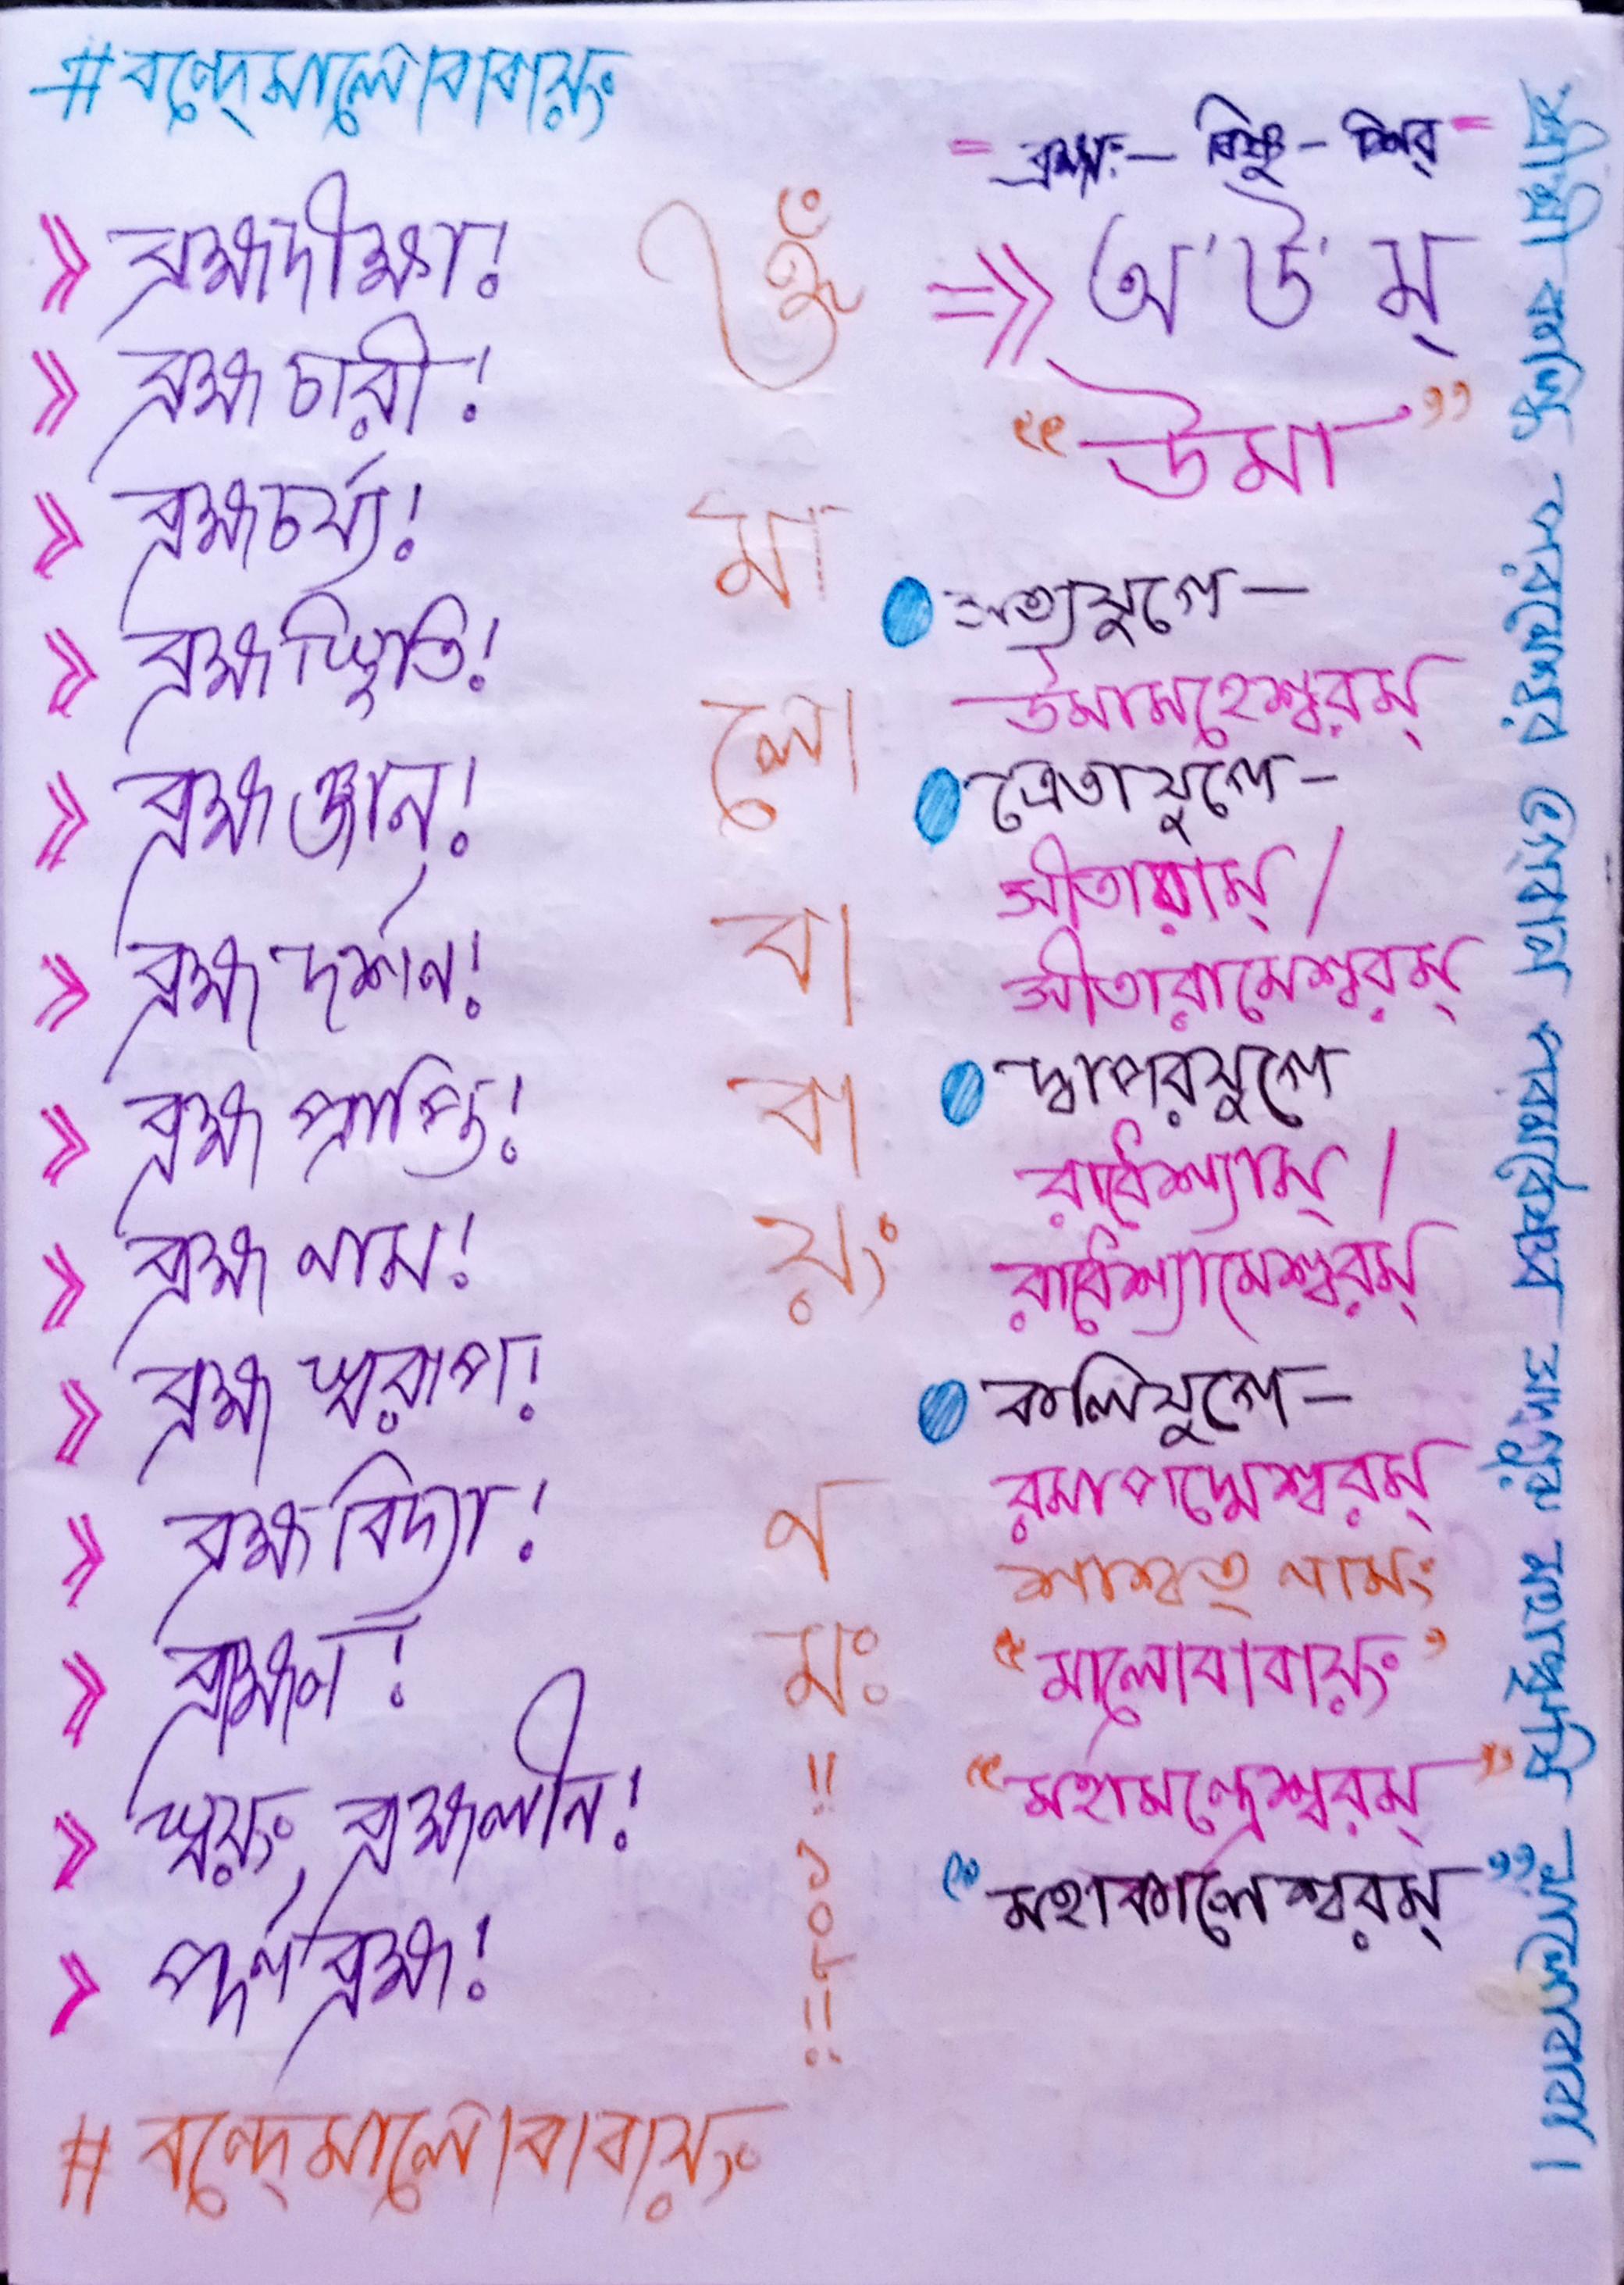 #বন্দেমালোবাবায়ং
ব্রহ্মদীক্ষা!
ব্রহ্মচারী!
ব্রহ্মচর্য্য!
ব্রহ্মস্থিতি!
ব্রহ্মজ্ঞান!
ব্রহ্ম দর্শন!
ব্রহ্ম প্রাপ্তি!
ব্রহ্ম নাম!
ব্রহ্ম স্বরূপ!
ব্রহ্মবিদ্যা!
ব্রাহ্মণ!
স্বয়ং ব্রহ্মলীন!
পূর্ণব্রহ্ম!
#বন্দেমালোবাবায়ং
ওঁ
মা
লো
বা
বা
য়ং
ন
মঃ
!!
১০৮
!!
= ব্রহ্মা: - বিষ্ণু - শিব =
=>> অ' উ' ম্
"উমা"
সত্যযুগে-
উমামহেশ্বরম্
ত্রেতাযুগে-
সীতারাম্ /
সীতারামেশ্বরম্
দ্বাপরযুগে
রাধেশ্যাম্ /
রাধেশ্যামেশ্বরম্
কলিযুগে-
রমাপদ্মেশ্বরম্
শাশ্বত্ নামং
"মালোবাবায়ং"
"মহামন্ত্রেশ্বরম্"
"মহাকালেশ্বরম্"
শ্রীশ্রী পরমেশ্বর পরমারাধ্যেশ্বর